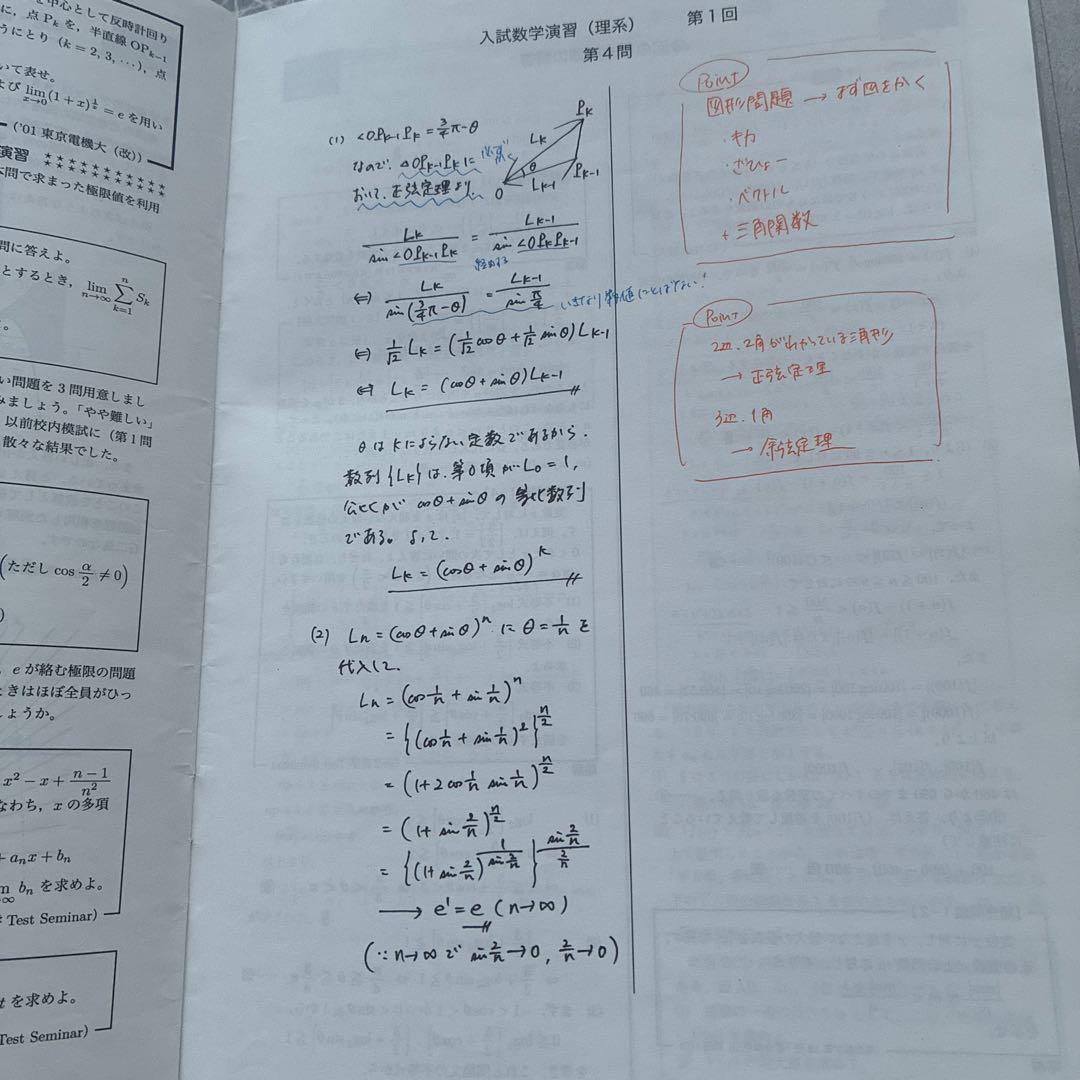 を中心として反時計回り
に，点 Pₖ を，半直線 OPₖ₋₁
うにとり (k = 2, 3, …)，点
いて表せ．
よび lim_{x→0}(1+x)^{1/x} = e を用い
('01 東京電機大（改))
演習 ★★★★★★★★★★
本問で求まった極限値を利用
問に答えよ．
とするとき，lim_{n→∞} Σ_{k=1}^{n} Sₖ
い問題を 3 問用意しまし
みましょう．「やや難しい」
以前校内模試に（第 1 問
散々な結果でした．
(ただし cos α/2 ≠ 0)
，e が絡む極限の問題
ときはほぼ全員がひっ
しょうか．
x² − x + (n−1)/n²
なわち，x の多項
+ aₙx + bₙ
bₙ を求めよ．
Test Seminar)
t を求めよ．
Test Seminar)
入試数学演習（理系） 第１回
第４問
(1) ∠OPₖ₋₁Pₖ = 3/4π−θ
なので、△OPₖ₋₁Pₖに
必ずかく
おいて、正弦定理より、
Pₖ
Lₖ
θ
Pₖ₋₁
O
Lₖ₋₁
Lₖ / sin∠OPₖ₋₁Pₖ = Lₖ₋₁ / sin∠OPₖPₖ₋₁
経由する
⇔ Lₖ / sin(3/4π−θ) = Lₖ₋₁ / sin π/4
いきなり数値にとばない!
⇔ 1/√2 Lₖ = (1/√2 cosθ + 1/√2 sinθ)Lₖ₋₁
⇔ Lₖ = (cosθ + sinθ)Lₖ₋₁
θはkによらない定数であるから、
数列{Lₖ}は、第0項がL₀ = 1,
公比がcosθ+sinθの等比数列
である。よって、
Lₖ = (cosθ + sinθ)^k
(2) Lₙ = (cosθ+sinθ)^n に θ = 1/n を
代入して、
Lₙ = (cos 1/n + sin 1/n)^n
= {(cos 1/n + sin 1/n)²}^{n/2}
= (1+2cos 1/n sin 1/n)^{n/2}
= (1+ sin 2/n)^{n/2}
= {(1+sin 2/n)^{1/(sin 2/n)}}^{(sin 2/n)/(2/n)}
→ e¹ = e (n→∞)
(∵ n→∞で sin 2/n→0, 2/n→0)
Point
図形問題 → まず図をかく
・キカ
・ざひょー
・ベクトル
+ 三角関数
Point
2辺、2角がわかっている三角形
→ 正弦定理
3辺、1角
→ 余弦定理